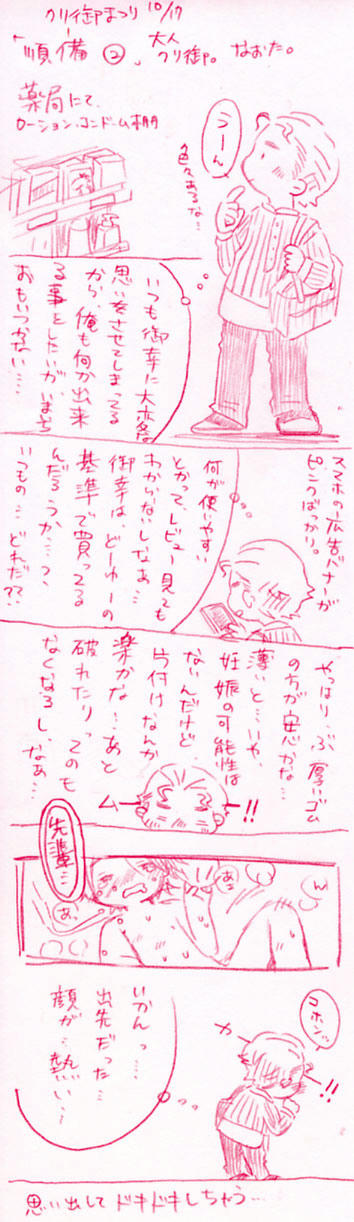 クリ御まつり 10/17
「順備②」 大人クリ御。なおた。
薬局にて、
ローション、コンドーム棚
うーん
色々あるな…
いつも御幸に大変な
思いをさせてしまってる
から、俺も何か出来
る事をしたいが、いまいち
おもいつかない…
スマホの広告バナーが
ピンクばかり。
何が使いやすい
とかって、レビュー見ても
わからないしなぁ…
御幸は、どーゆーの
基準で買ってる
んだろうか…?
いつもの…どれだ??
やっぱり、ぶ厚いゴム
の方が安心かな…
薄いと…いや、
妊娠の可能性は
ないんだけど、
片付けなんか
楽かな…あと
破れたりってのも
なくなるし、なぁ…
ム
!!
先輩…
あっ
あっ
コホンッ
カー
!!
いかんっ…
出先だった…
顔が…熱い…
思い出してドキドキしちゃう…